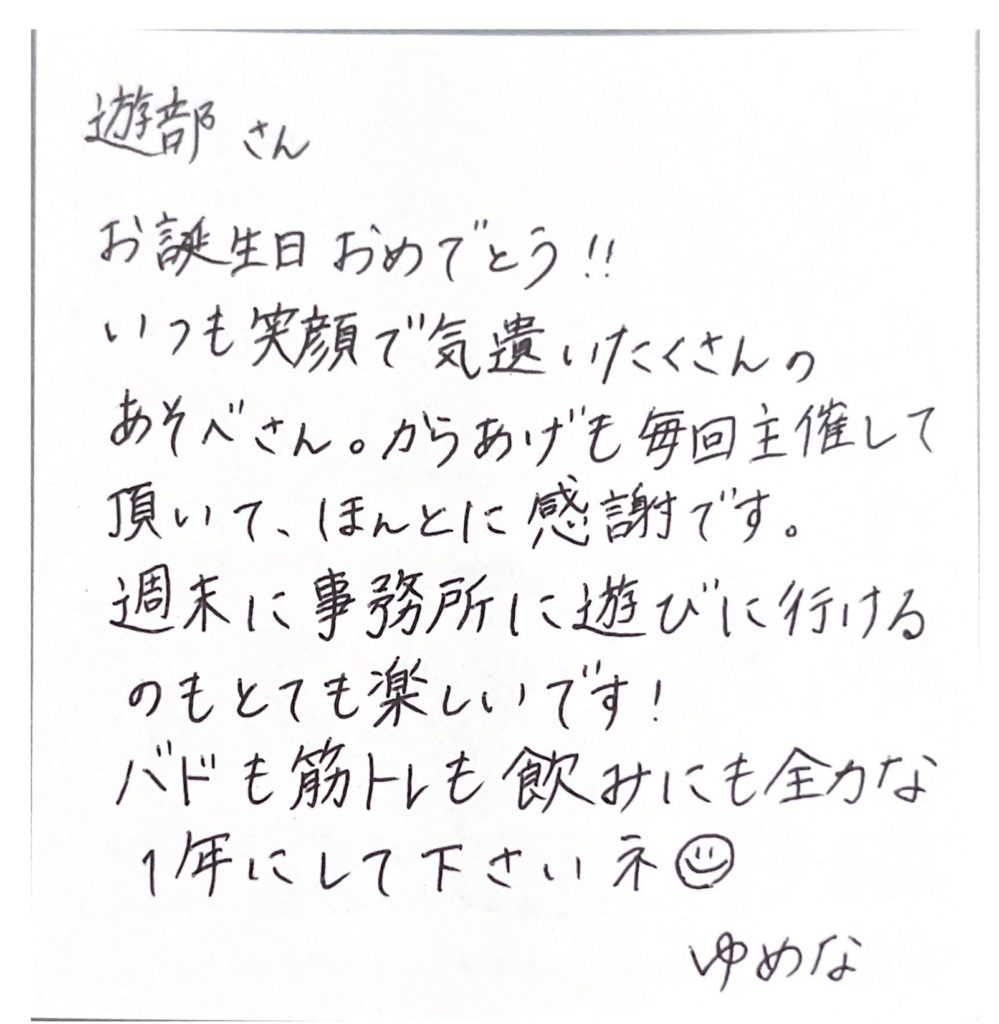 遊部さん
お誕生日おめでとう!!
いつも笑顔で気遣いたくさんの
あそべさん。からあげも毎回主催して
頂いて、ほんとに感謝です。
週末に事務所に遊びに行ける
のもとても楽しいです!
バドも筋トレも飲みにも全力な
1年にして下さいネ☺
ゆめな